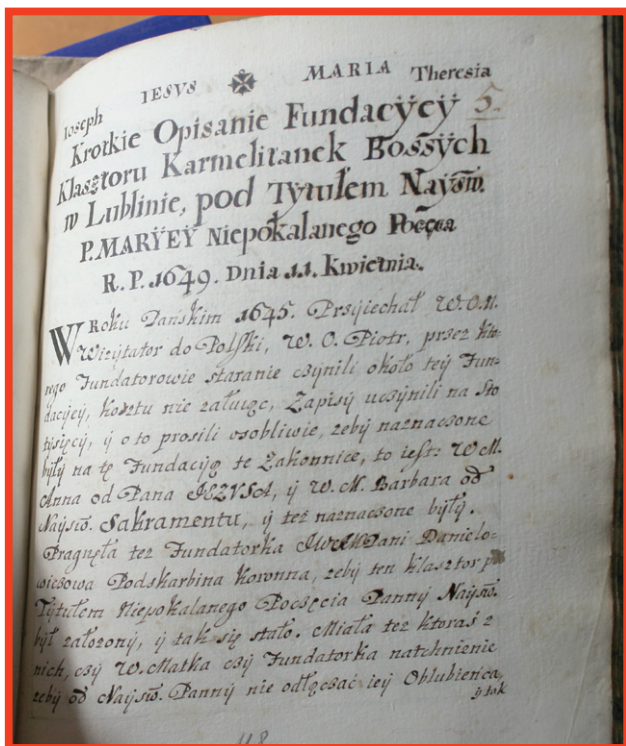 Ioseph IESVS MARIA Theresia
Krotkie Opisanie Fundacÿcÿ 5.
Klasztoru Karmelitanek Bossÿch
w Lublinie, pod Tÿtułem Nayśw.
P. MARŸEŸ Niepokalanego Poczęcia
R. P. 1649. Dnia 11. Kwietnia.
W Roku Pańskim 1645. Przÿiechał W.O.N.
Wizÿtator do Polski, W. O. Piotr, przez kto-
rego Fundatorowie staranie czÿnili około teÿ Fun-
dacÿcy, kosztu nie załuiąc, Zapisÿ uczÿnili na sto
tÿsięcÿ, ÿ o to prosili osobliwie, zebÿ naznaczone
bÿłÿ na tę Fundacÿą te Zakonnice, to iest: W.M.
Anna od Pana JEZUSA, ÿ W. M. Barbara od
Nayśw. Sakramentu, ÿ tez naznaczone bÿłÿ.
Pragnęła tez Fundatorka Pani Daniełо-
wiczowa Podskarbina Koronna, zebÿ ten klasztor
Tÿtułem Niepokalanego Poczęcia Pannÿ Nayśw.
bÿł załozonÿ, ÿ tak się stało. Miała tez ktoraś z
nich, czÿ W. Matka czÿ Fundatorka natchnienie
zebÿ od Nayśw. Pannÿ nie odłączać ieÿ Oblubieńca,
ÿ tak